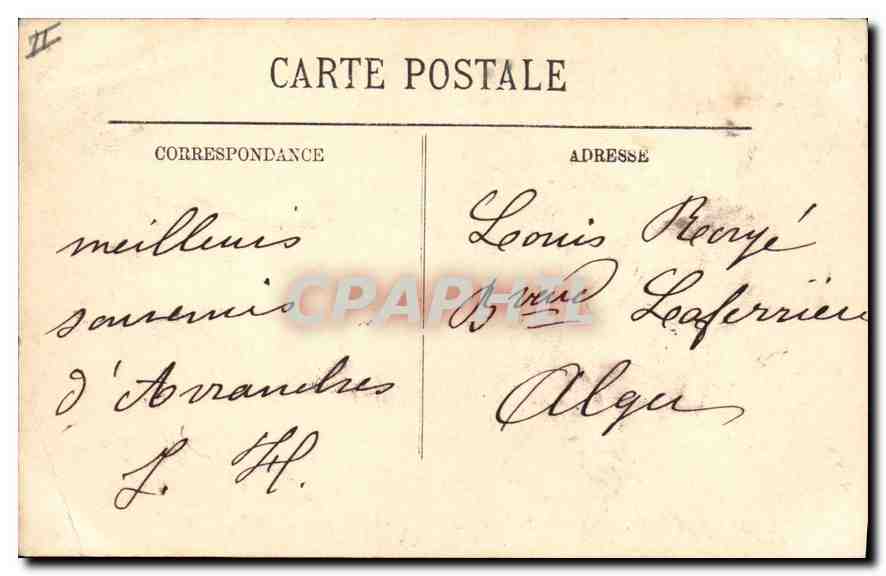 II
CARTE POSTALE
CORRESPONDANCE
ADRESSE
meilleurs
souvenirs
d'Avranches
J. H.
Louis
Bvard Laferrière
Alger
CPAPHIL